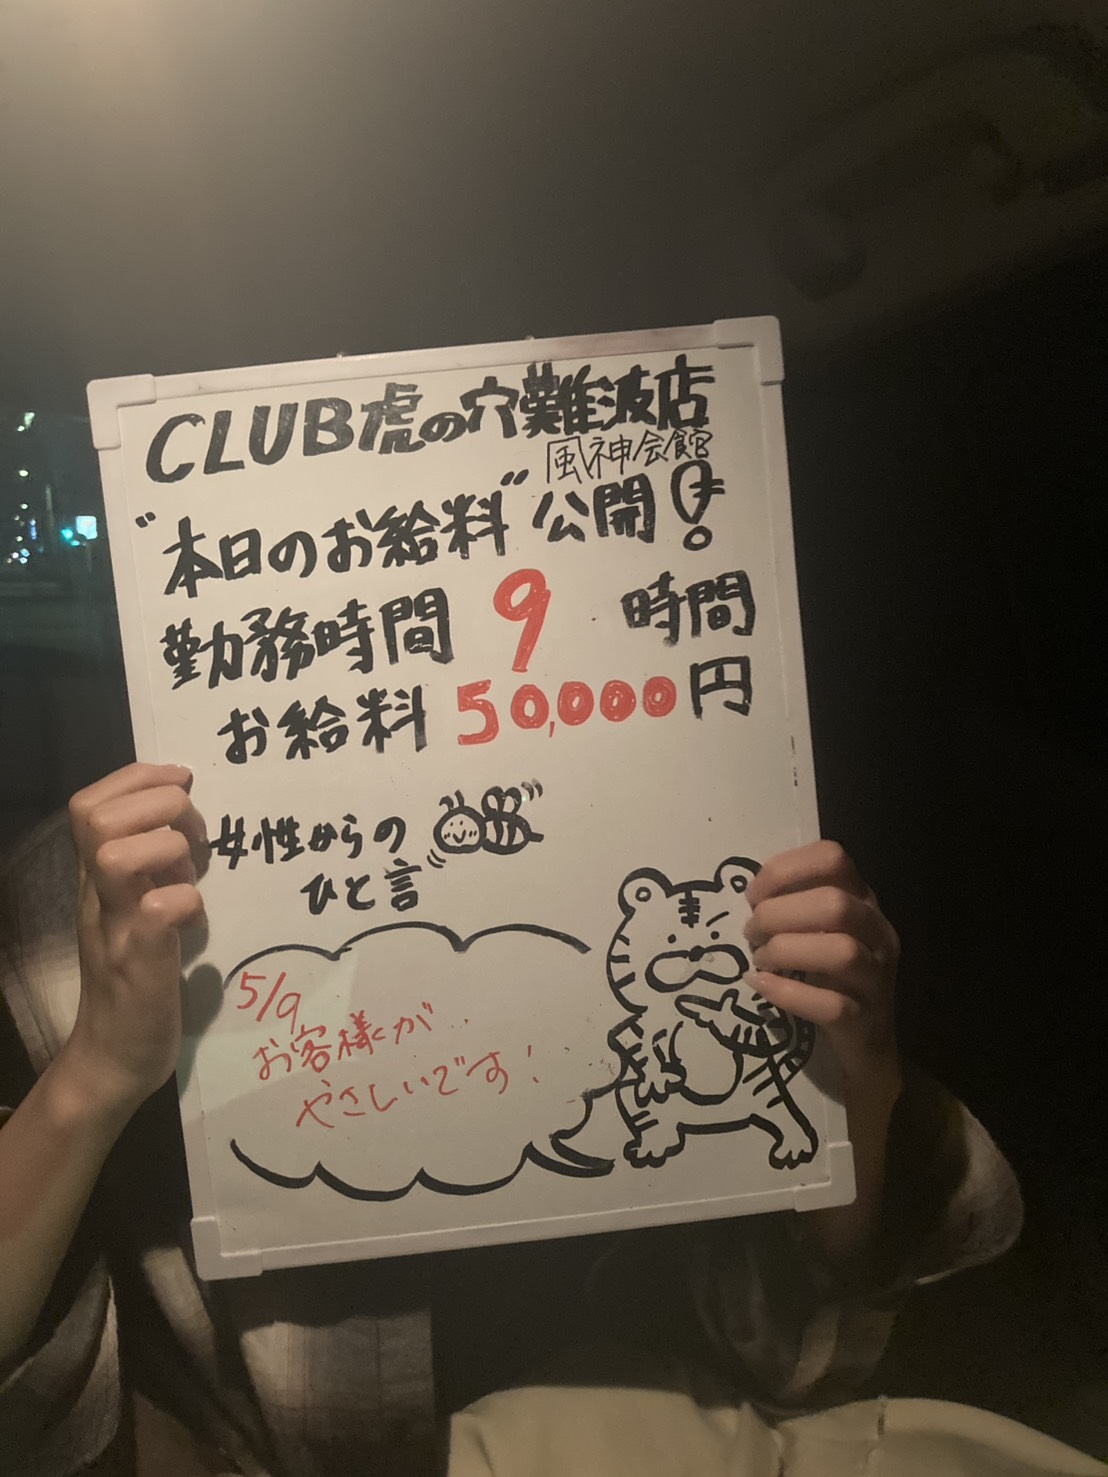 CLUB虎の穴難波店
風神会館
"本日のお給料"公開!
勤務時間 9 時間
お給料 50,000円
女性からの
ひと言
5/9
お客様が..
やさしいです!